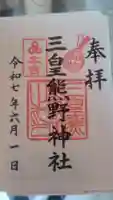 奉拝
三皇熊野神社
令和七年六月一日